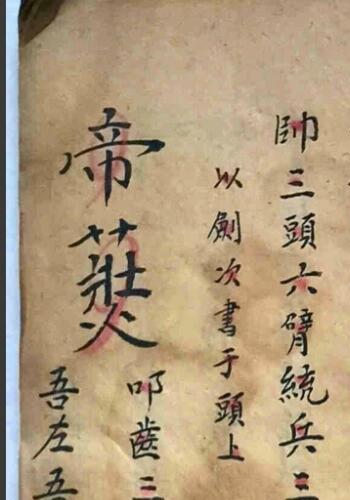 帥三頭六臂統兵三
以劍次書于頭上
帝
叩齒三
吾左吾